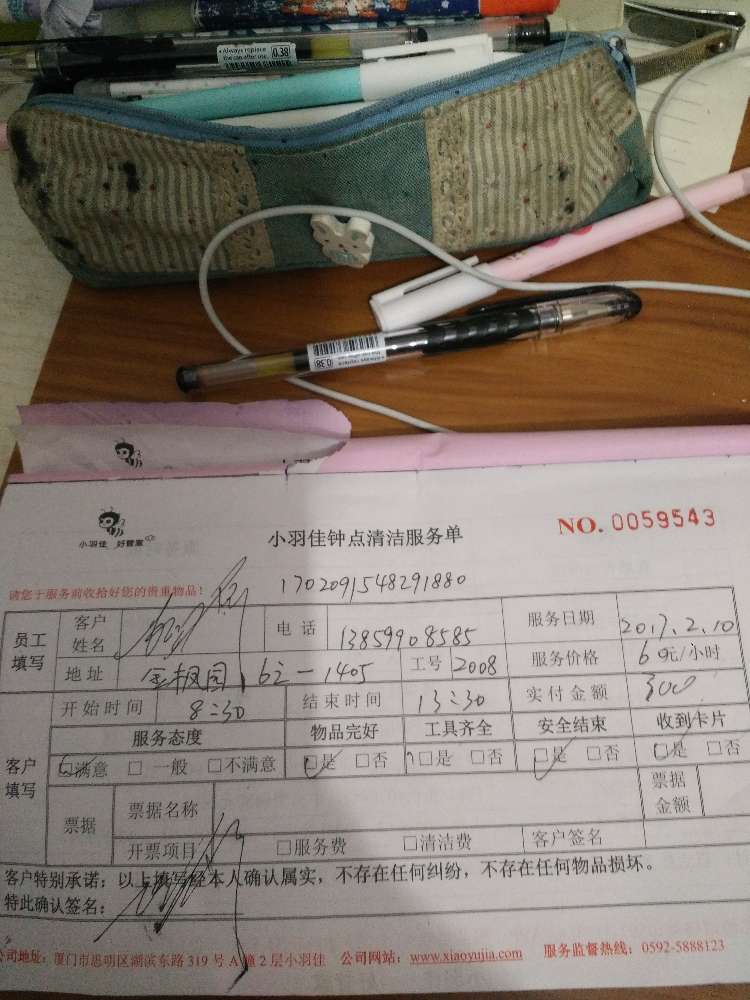 Always replace
the cap after use.
0.38
0.38
小羽佳 好管家
小羽佳钟点清洁服务单
NO. 0059543
请您于服务前收拾好您的贵重物品!
1702091548291880
员工填写
客户姓名
电话 13859908585
服务日期 2017.2.10
地址 金枫园 62-1405
工号 2008
服务价格 60元/小时
开始时间 8:30
结束时间 13:30
实付金额 300
客户填写
服务态度 物品完好 工具齐全 安全结束 收到卡片
☑满意 □一般 □不满意 ☑是 □否 ☑是 □否 ☑是 □否 ☑是 □否
票据
票据名称
票据金额
开票项目 □服务费 □清洁费 客户签名
客户特别承诺:以上填写经本人确认属实,不存在任何纠纷,不存在任何物品损坏。
特此确认签名:
公司地址:厦门市思明区湖滨东路319号A幢2层小羽佳 公司网站:www.xiaoyujia.com 服务监督热线:0592-5888123